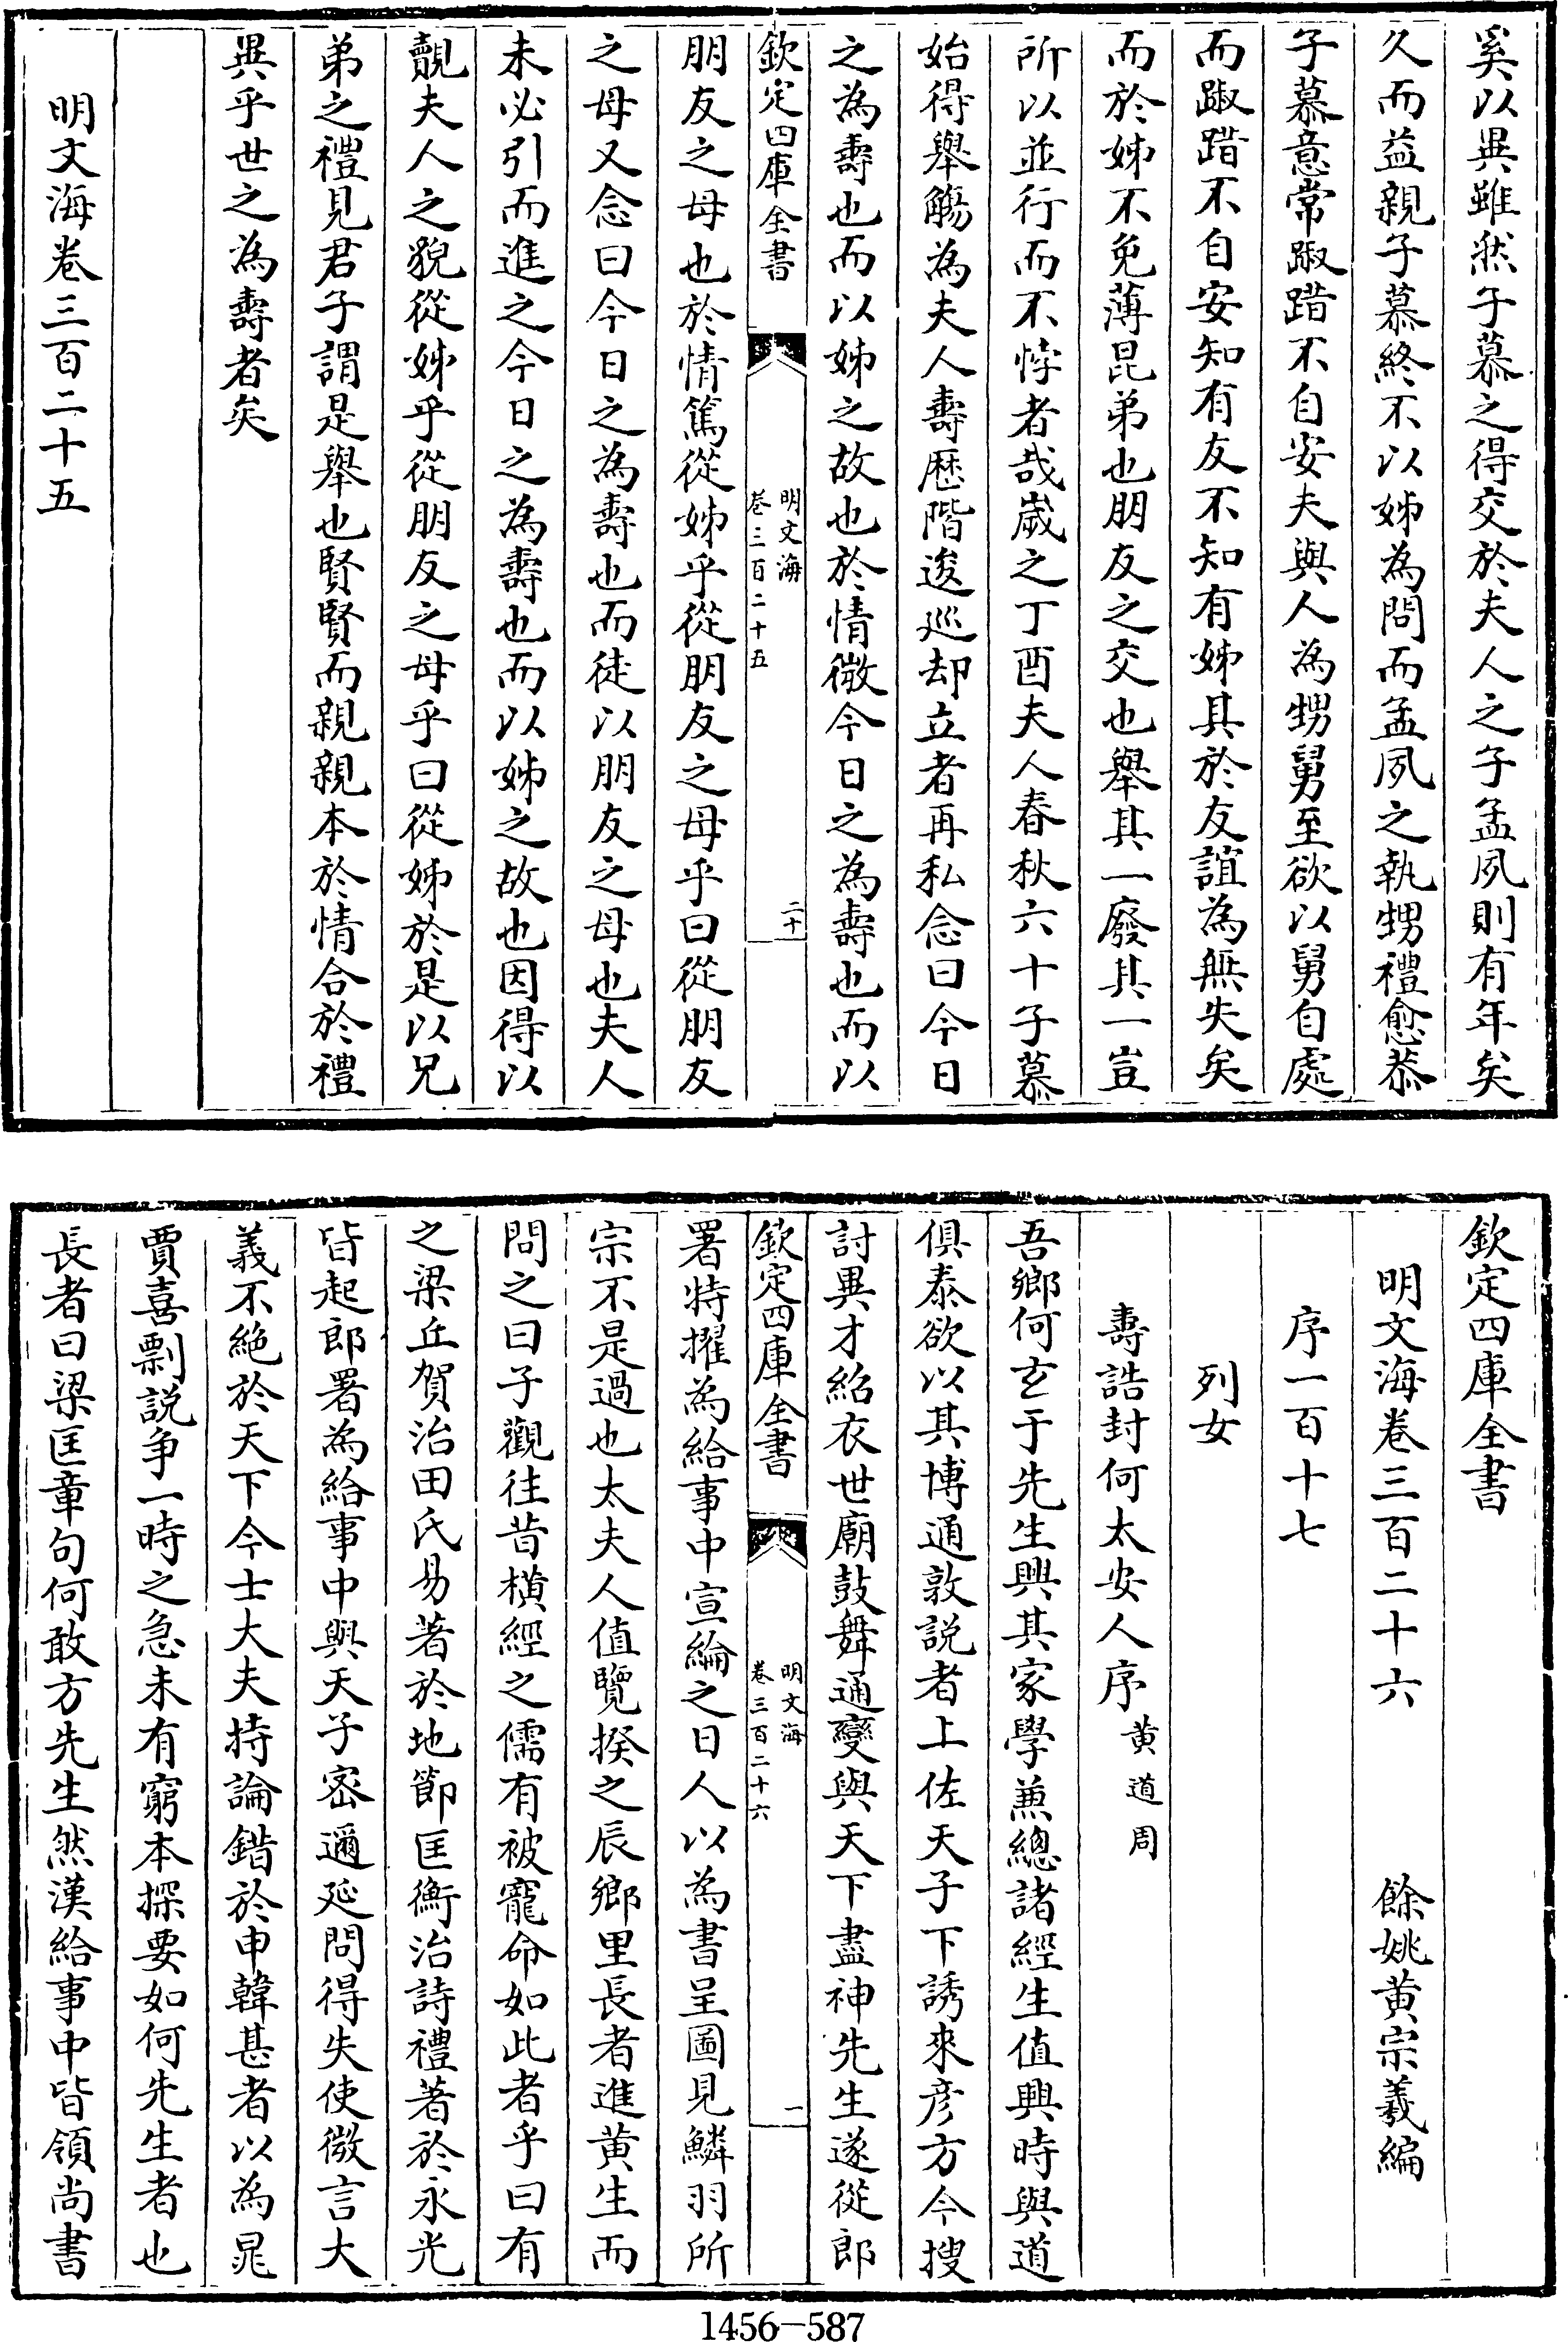 奚以異雖然子慕之得交於夫人之子孟夙則有年矣
久而益親子慕終不以姊為問而孟夙之執甥禮愈恭
子慕意常踧踖不自安夫與人為甥舅至欲以舅自處
而踧踖不自安知有友不知有姊其於友誼為無失矣
而於姊不免薄昆弟也朋友之交也舉其一廢其一豈
所以並行而不悖者哉嵗之丁酉夫人春秋六十子慕
始得舉觴為夫人壽歴階逡巡却立者再私念曰今日
之為壽也而以姊之故也於情微今日之為壽也而以
欽定四庫全書
明文海
卷三百二十五
二十
朋友之母也於情篤從姊乎從朋友之母乎曰從朋友
之母又念曰今日之為壽也而徒以朋友之母也夫人
未必引而進之今日之為壽也而以姊之故也因得以
覿夫人之貌從姊乎從朋友之母乎曰從姊於是以兄
弟之禮見君子謂是舉也賢賢而親親本於情合於禮
異乎世之為壽者矣
明文海卷三百二十五
欽定四庫全書
明文海卷三百二十六
餘姚黄宗羲編
序一百十七
列女
壽誥封何太安人序黄道周
吾鄉何玄于先生興其家學兼總諸經生值興時與道
俱泰欲以其博通敦説者上佐天子下誘來彦方今搜
討異才紹衣世廟鼓舞通變與天下盡神先生遂從郎
欽定四庫全書
明文海
卷三百二十六
一
署特擢為給事中宣綸之日人以為書呈圖見鱗羽所
宗不是過也太夫人值覽揆之辰鄉里長者進黄生而
問之曰子觀往昔橫經之儒有被寵命如此者乎曰有
之梁丘賀治田氏易著於地節匡衡治詩禮著於永光
皆起郎署為給事中與天子宻邇延問得失使微言大
義不絶於天下今士大夫持論錯於申韓甚者以為晁
賈喜剽説争一時之急未有窮本探要如何先生者也
長者曰梁匡章句何敢方先生然漢給事中皆領尚書
1456—587